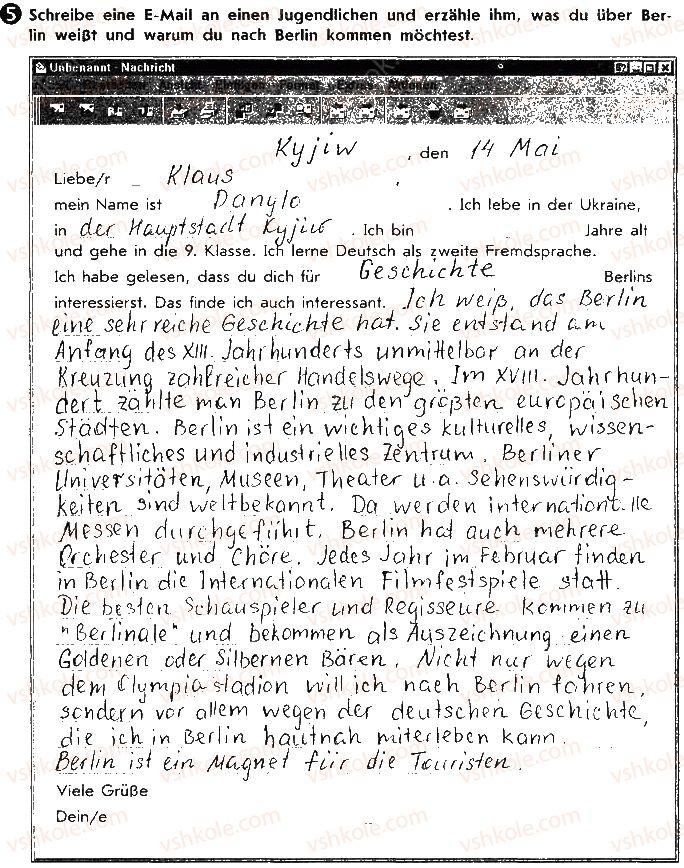 5 Schreibe eine E-Mail an einen Jugendlichen und erzähle ihm, was du über Ber-
lin weißt und warum du nach Berlin kommen möchtest.
Unbenannt - Nachricht
Kyjiw, den 14 Mai
Liebe/r Klaus,
mein Name ist Danylo. Ich lebe in der Ukraine,
in der Hauptstadt Kyjiw. Ich bin Jahre alt
und gehe in die 9. Klasse. Ich lerne Deutsch als zweite Fremdsprache.
Ich habe gelesen, dass du dich für Geschichte Berlins
interessierst. Das finde ich auch interessant. Ich weiß, das Berlin
eine sehr reiche Geschichte hat. Sie entstand am
Anfang des XIII. Jahrhunderts unmittelbar an der
Kreuzung zahlreicher Handelswege. Im XVIII. Jahrhun-
dert zählte man Berlin zu den größten europäischen
Städten. Berlin ist ein wichtiges kulturelles, wissen-
schaftliches und industrielles Zentrum. Berliner
Universitäten, Museen, Theater u.a. Sehenswürdig-
keiten sind weltbekannt. Da werden
Messen durchgeführt. Berlin hat auch mehrere
Orchester und Chöre. Jedes Jahr im Februar finden
in Berlin die Internationalen Filmfestspiele statt.
Die besten Schauspieler und Regisseure kommen zu
"Berlinale" und bekommen als Auszeichnung einen
Goldenen oder Silbernen Bären. Nicht nur wegen
dem Olympiastadion will ich nach Berlin fahren,
sondern vor allem wegen der deutschen Geschichte,
die ich in Berlin hautnah miterleben kann.
Berlin ist ein Magnet für die Touristen.
Viele Grüße
Dein/e
vshkole.com